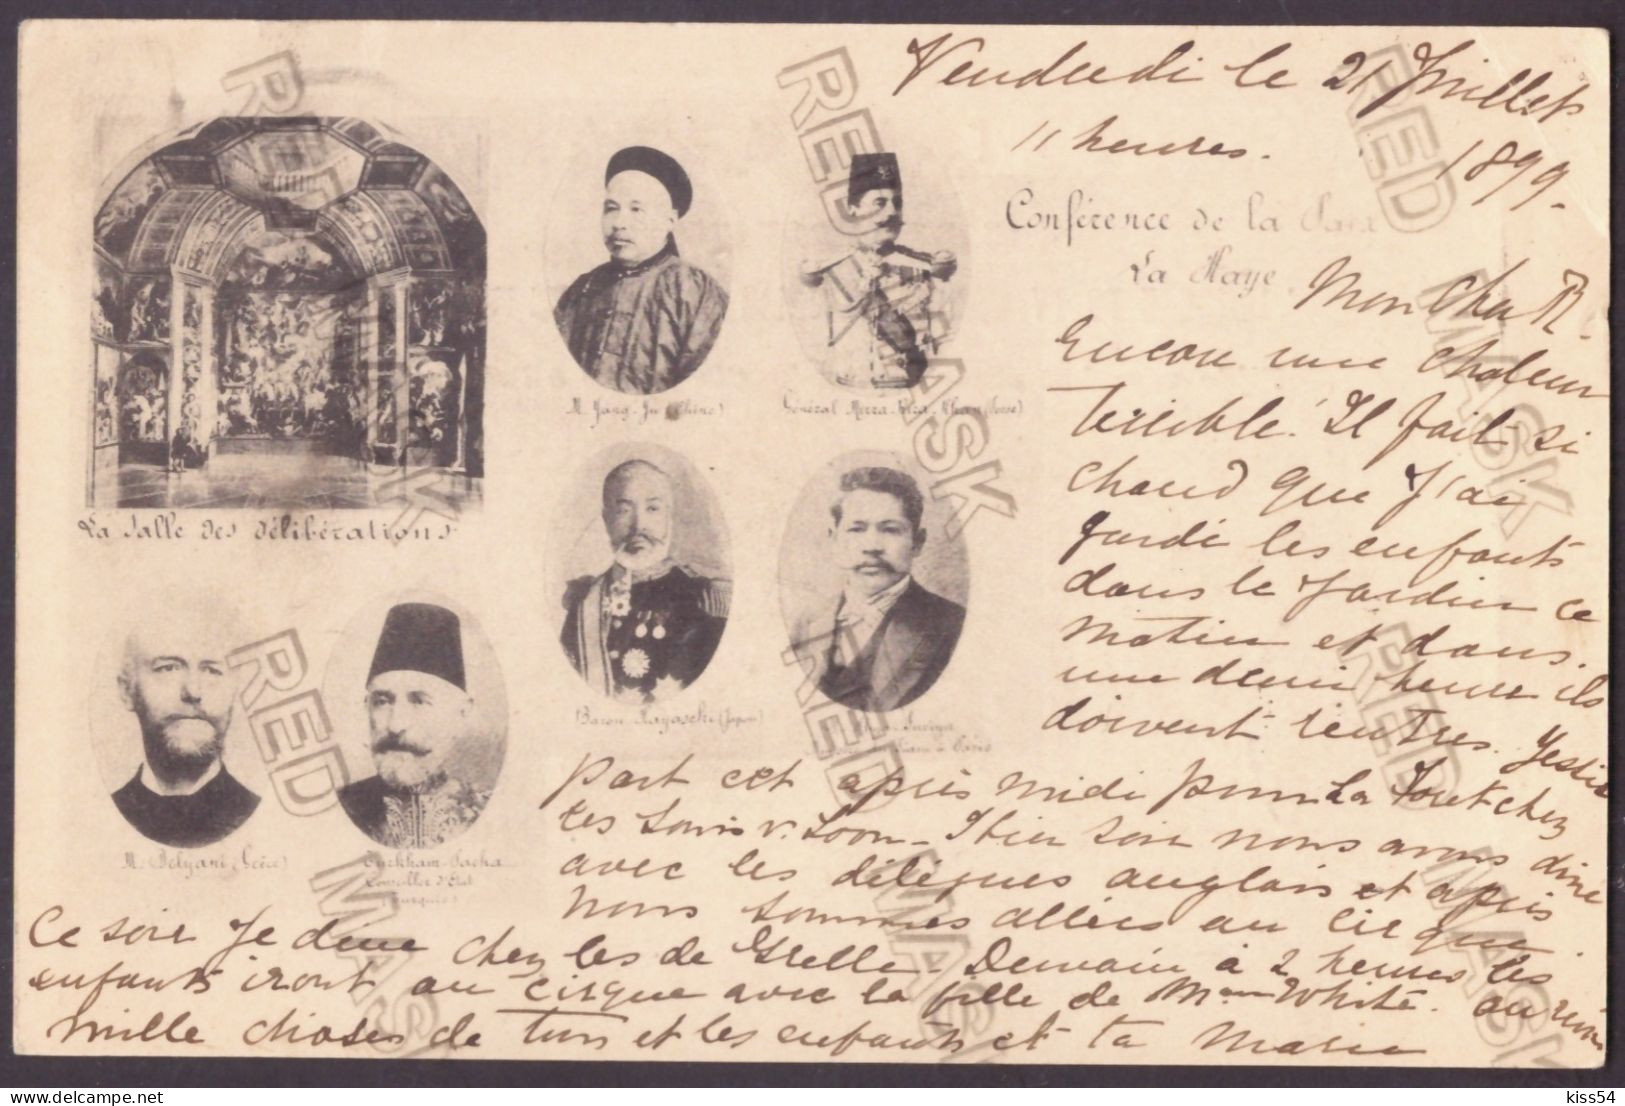 Vendredi le 21 Juillet
11 heures. 1899.
Conférence de la Paix
La Haye
Mon cher
Encore une chaleur
terrible. Il fait si
chaud que j'ai
gardé les enfants
dans le jardin ce
matin et dans
une demi heure ils
doivent rentrer.
part cet après midi pour La chez
les Louis v. Loon - Hier soir nous avons diné
avec les délégués anglais et après
nous sommes allées au cirque
Ce soir je dine chez les de Grelle - Demain à 2 heures les
enfants iront au cirque avec la fille de Mme White. au revoir
mille choses de tous et les enfants et ta Marie
La Salle des délibérations
M. Yang-Yu (Chine)
Général Mirza Riza Khan (Perse)
Baron Hayaschi (Japon)
Suriya
à Paris
M. Delyani (Grèce)
Turkham-Pacha
Conseiller d'Etat
(Turquie)
RED MASK
RED MASK
RED MASK
RED MASK
RED MASK
RED MASK
kiss54